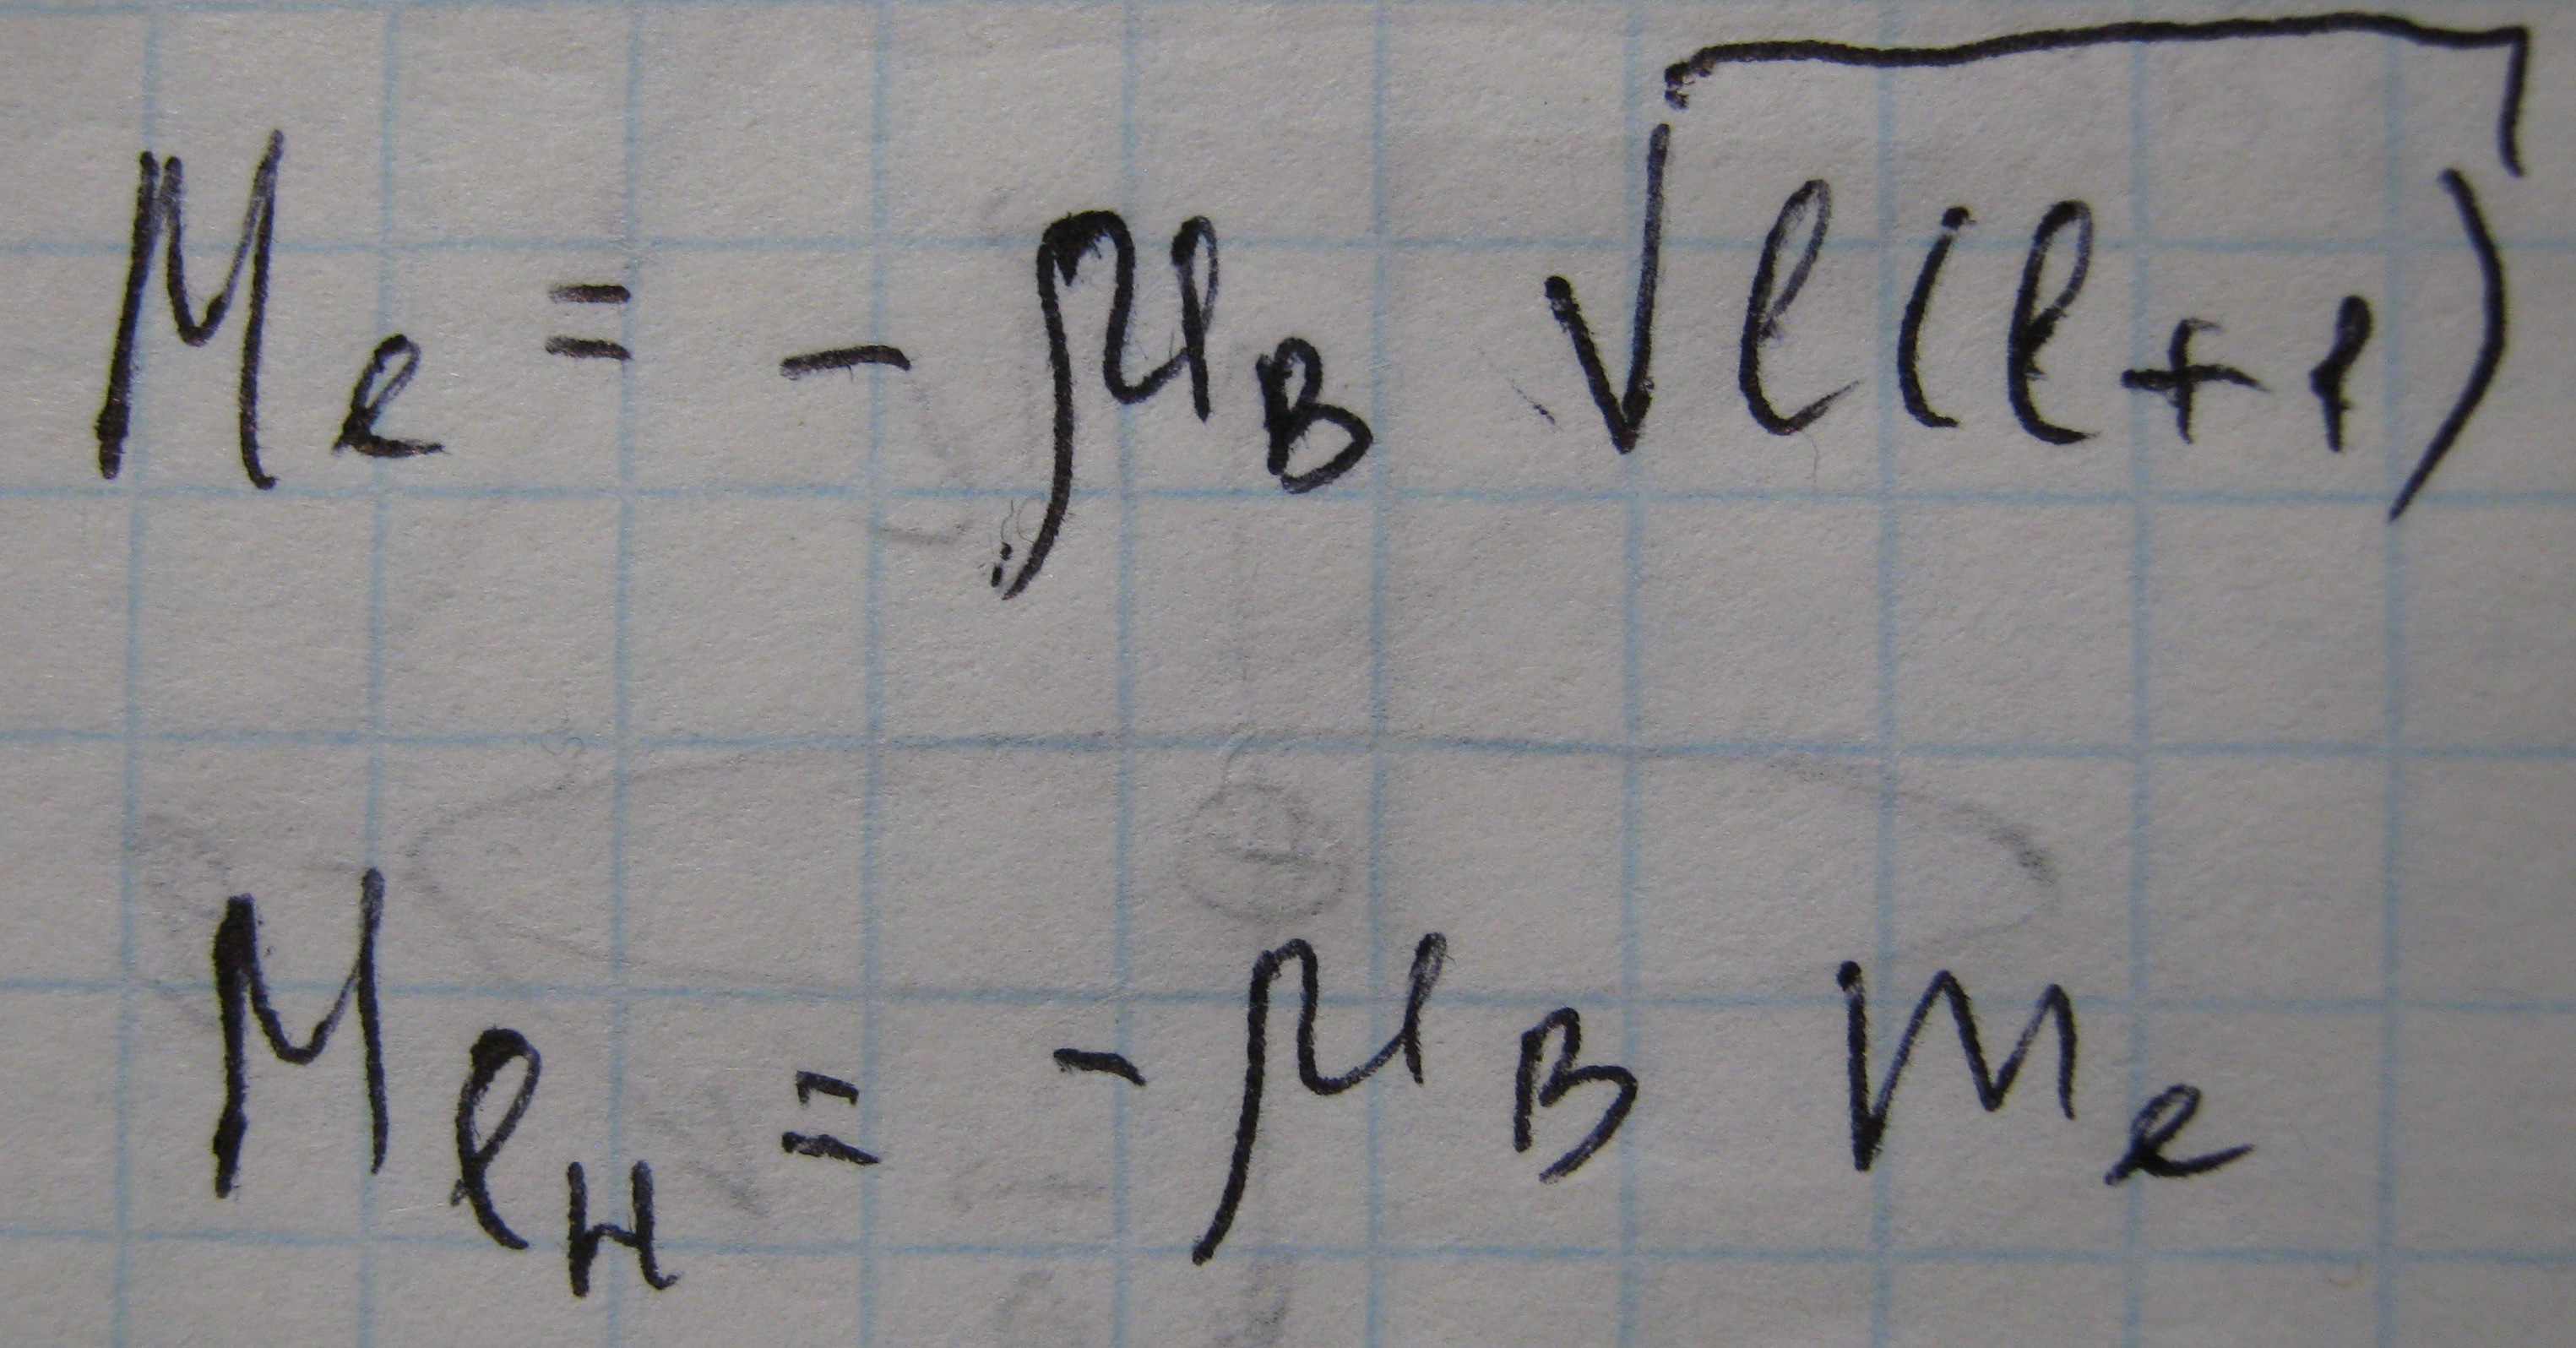 M_e = - μ_B √(l(l+1))
M_{l_H} = - μ_B m_e